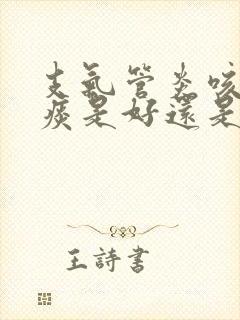 支氣管炎咳
痰是好還是
王詩書